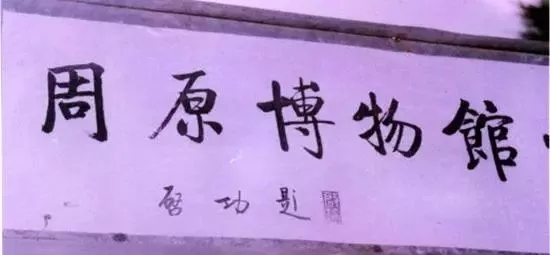 周原博物館
启功題